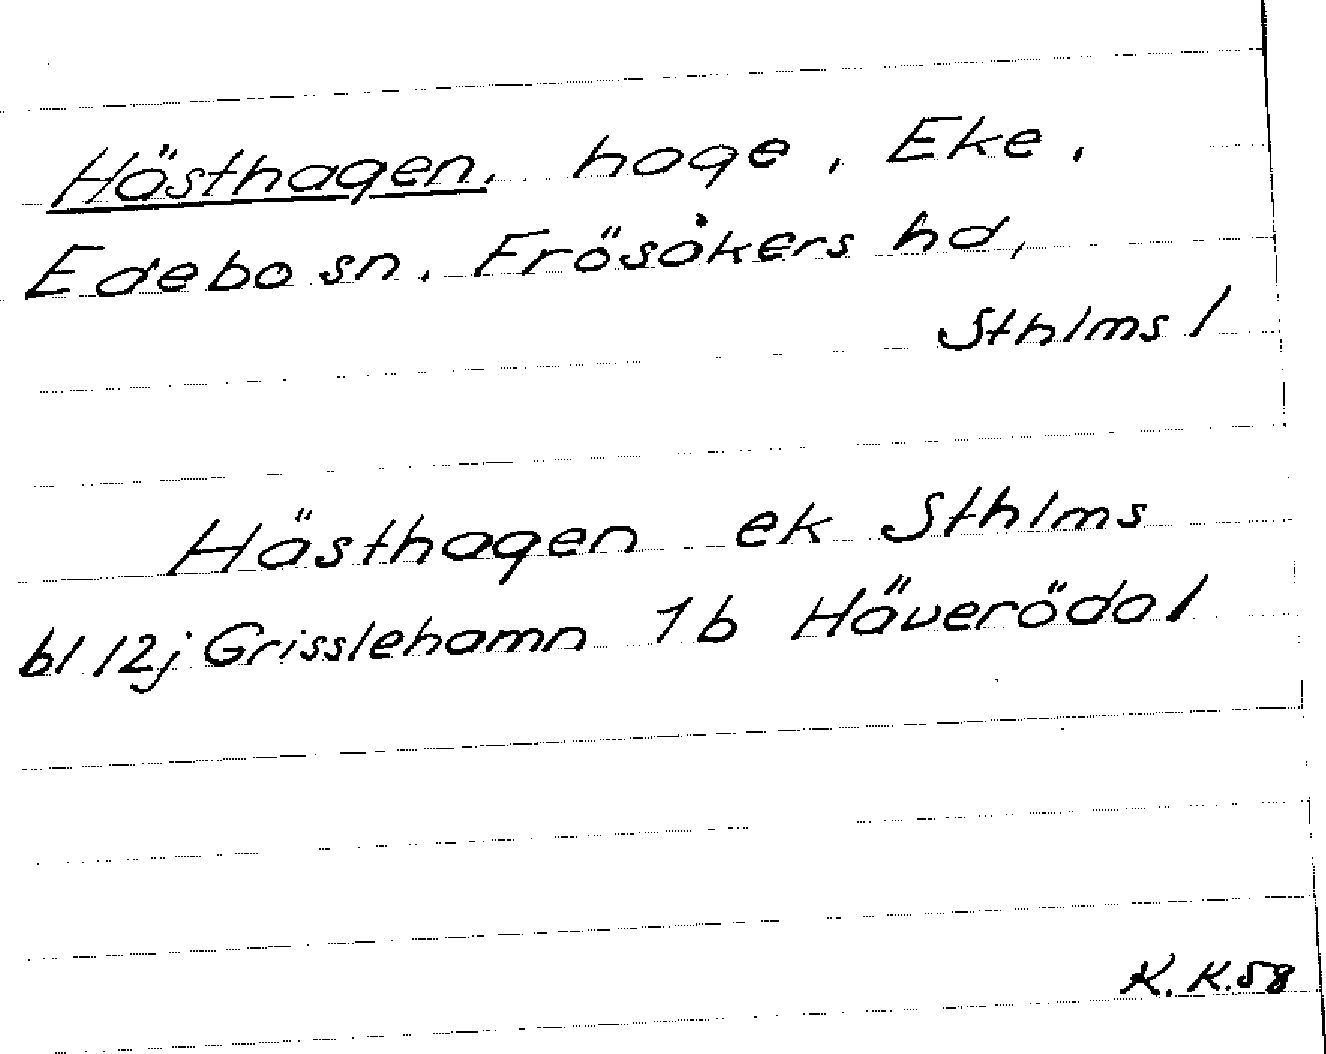 Hästhagen, hage, Eke,
Edebo sn. Frösåkers hd,
Sthlms l
Hästhagen ek Sthlms
bl 12j Grisslehamn 1b Häverödal
K. K. 58